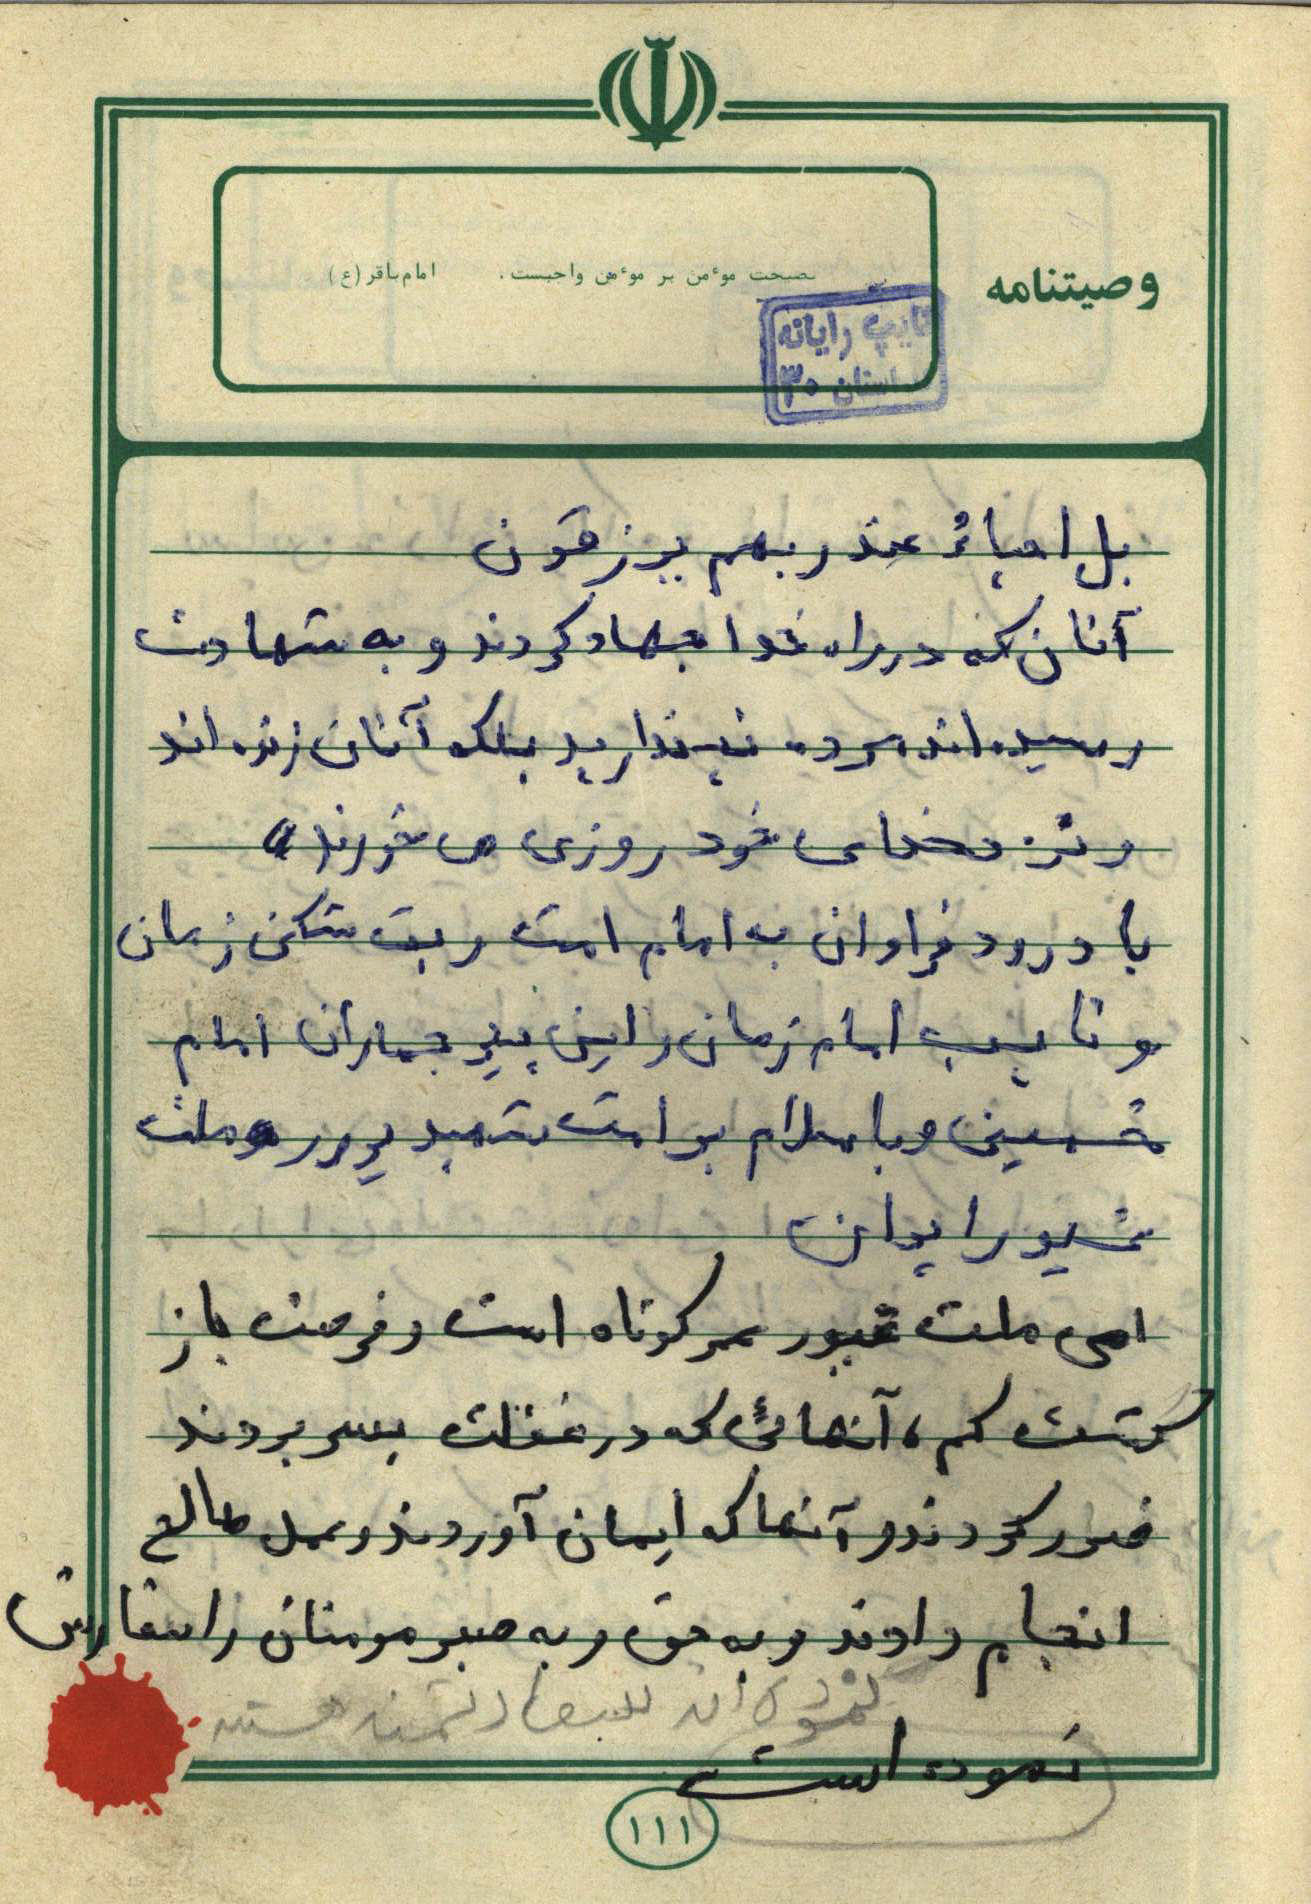 وصیتنامه
نصیحت موٴمن بر موٴمن واجبست . امام باقر (ع)
تایپ رایانه
استان ۳۰
بل احیاءٌ عند ربهم یرزقون
آنان که در راه خدا جهاد کردند و به شهادت
رسیده اند مرده نپندارید بلکه آنان زنده اند
و نزد خدای خود روزی می خورند»
با درود فراوان به امام امت و بت شکن زمان
و نایب امام زمان و این پیر جماران امام
خمینی و با سلام بر امت شهید پرور و ملت
غیور ایران
ای ملت غیور عمر کوتاه است و فرصت باز
گشت کم، آنهائی که در غفلت بسر بردند
ضرر کردند و آنها که ایمان آوردند و عمل صالح
انجام دادند و به حق و به صبر مومنان را سفارش
نموده اند سعادتمند هستند
نموده است
۱۱۱